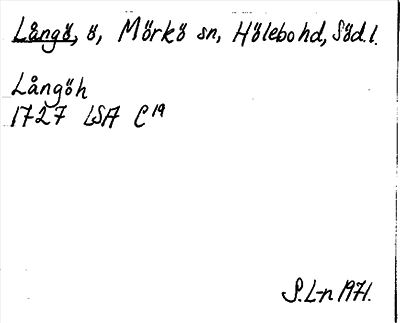 Långö, ö, Mörkö sn, Hölebohd, Söd.l.
Långöh
1727 LSA C19
S.L-n 1971.